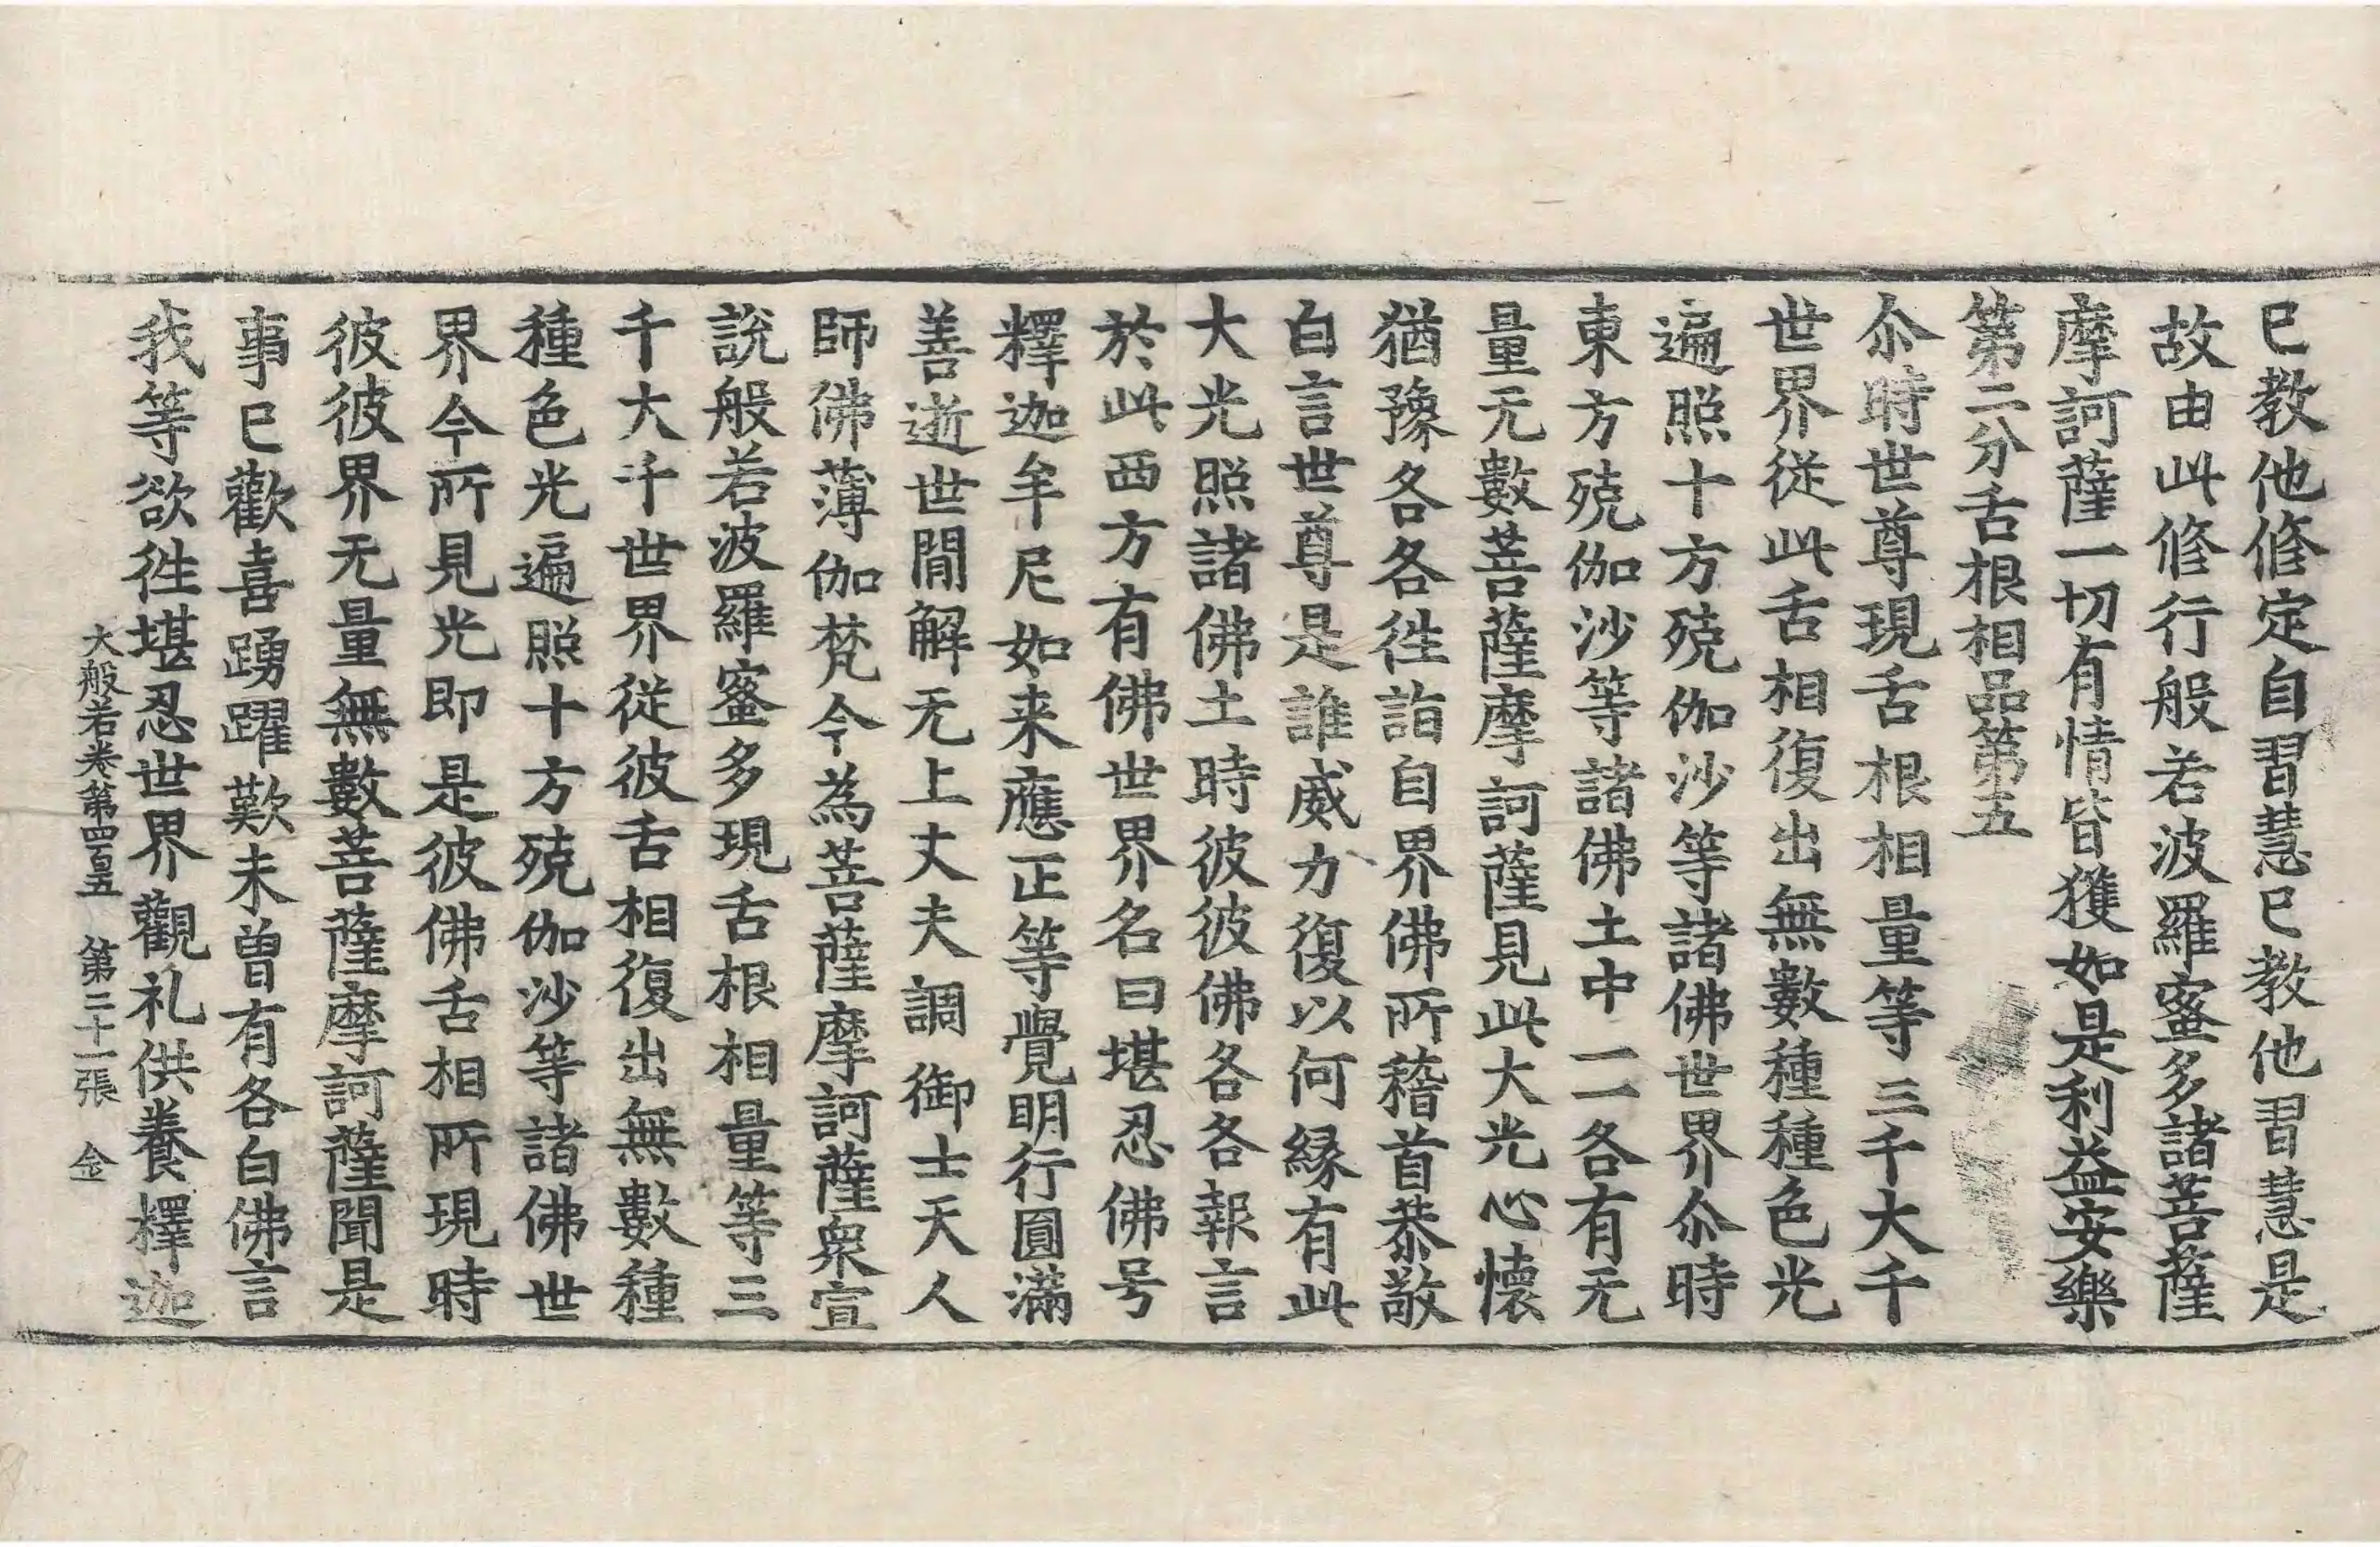 巳教他修定自習慧巳教他習慧是
故由此修行般若波羅蜜多諸菩薩
摩訶薩一切有情皆獲如是利益安樂
第二分舌根相品第五
尒時世尊現舌根相量等三千大千
世界從此舌相復出無數種種色光
遍照十方殑伽沙等諸佛世界尒時
東方殑伽沙等諸佛土中一一各有无
量无數菩薩摩訶薩見此大光心懷
猶豫各各徃詣自界佛所稽首恭敬
白言世尊是誰威力復以何緣有此
大光照諸佛土時彼彼佛各各報言
於此西方有佛世界名曰堪忍佛号
釋迦牟尼如来應正等覺明行圓滿
善逝世間解无上丈夫調御士天人
師佛薄伽梵今為菩薩摩訶薩衆宣
說般若波羅蜜多現舌根相量等三
千大千世界從彼舌相復出無數種
種色光遍照十方殑伽沙等諸佛世
界今所見光即是彼佛舌相所現時
彼彼界无量無數菩薩摩訶薩聞是
事巳歡喜踴躍歎未曾有各白佛言
我等欲徃堪忍世界觀礼供養釋迦
大般若卷第四百五 第二十一張 金